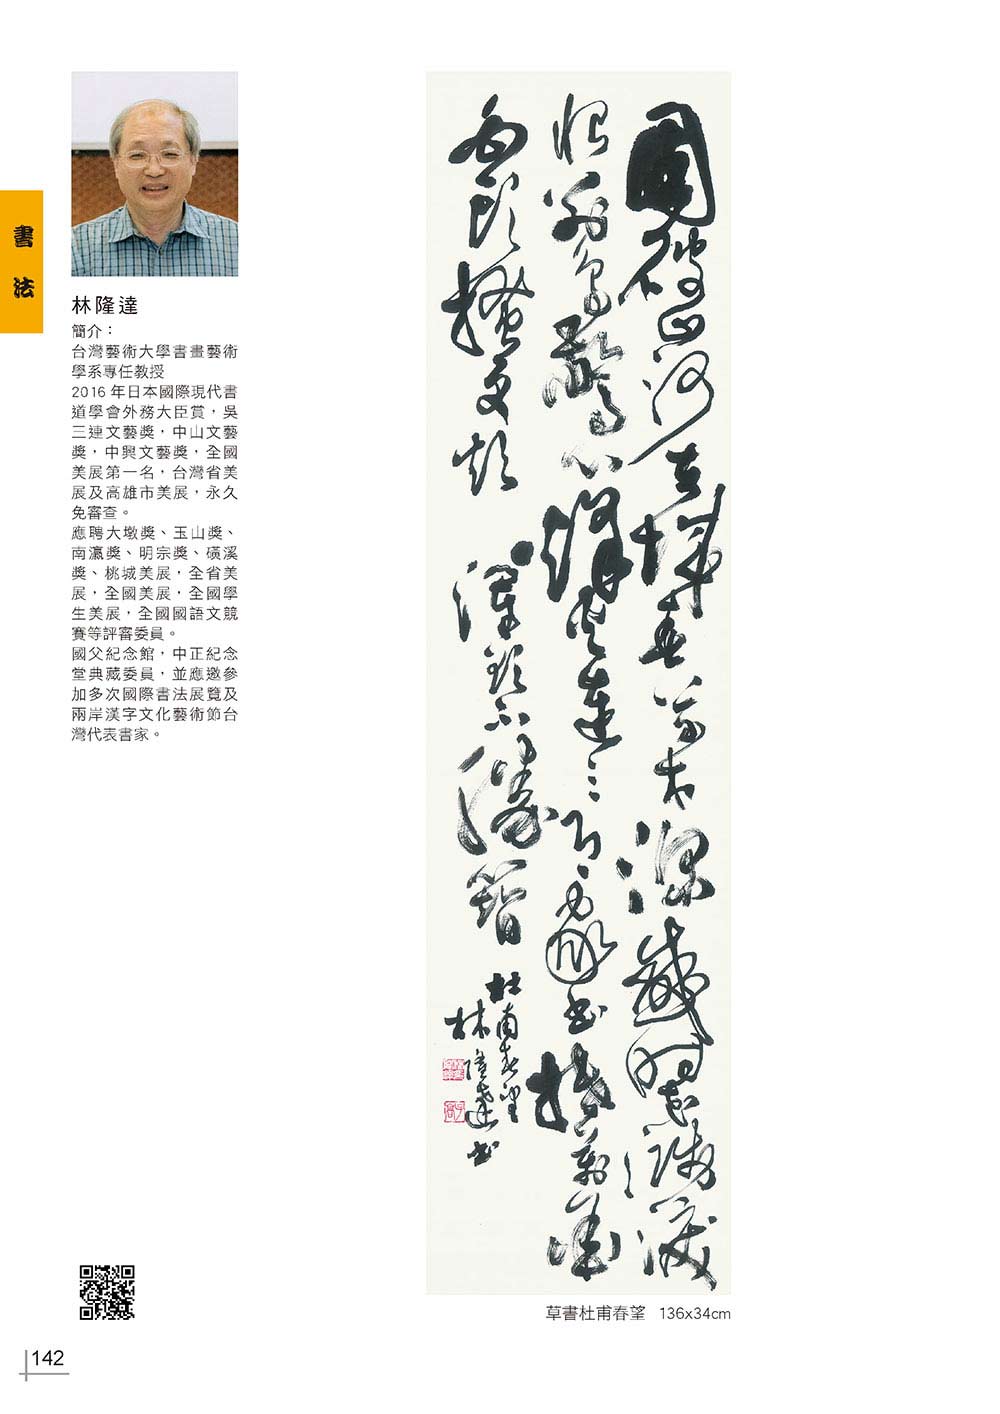 書法
林隆達
簡介：
台灣藝術大學書畫藝術
學系專任教授
2016 年日本國際現代書
道學會外務大臣賞，吳
三連文藝獎，中山文藝
獎，中興文藝獎，全國
美展第一名，台灣省美
展及高雄市美展，永久
免審查。
應聘大墩獎、玉山獎、
南瀛獎、明宗獎、磺溪
獎、桃城美展，全省美
展，全國美展，全國學
生美展，全國國語文競
賽等評審委員。
國父紀念館，中正紀念
堂典藏委員，並應邀參
加多次國際書法展覽及
兩岸漢字文化藝術節台
灣代表書家。
國破山河在城春草木深感時花濺淚
恨別鳥驚心烽火連三月家書抵萬金
白頭搔更短渾欲不勝簪
杜甫春望
林隆達書
草書杜甫春望 136x34cm
142